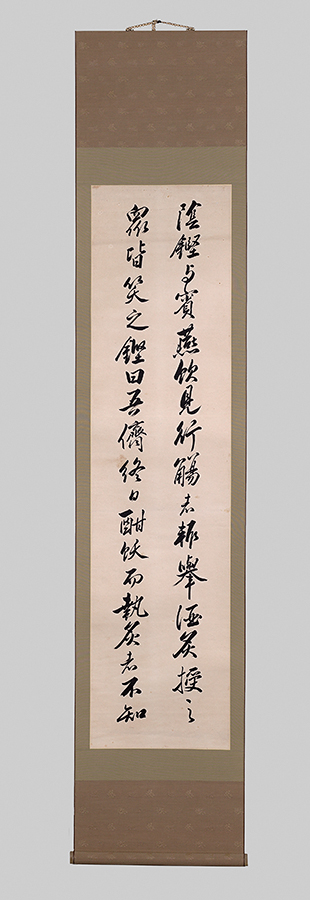 陰鏗与賓燕飲見行觴者輒舉酒炙授之
衆皆笑之鏗曰吾儕終日酣飲而執炙者不知